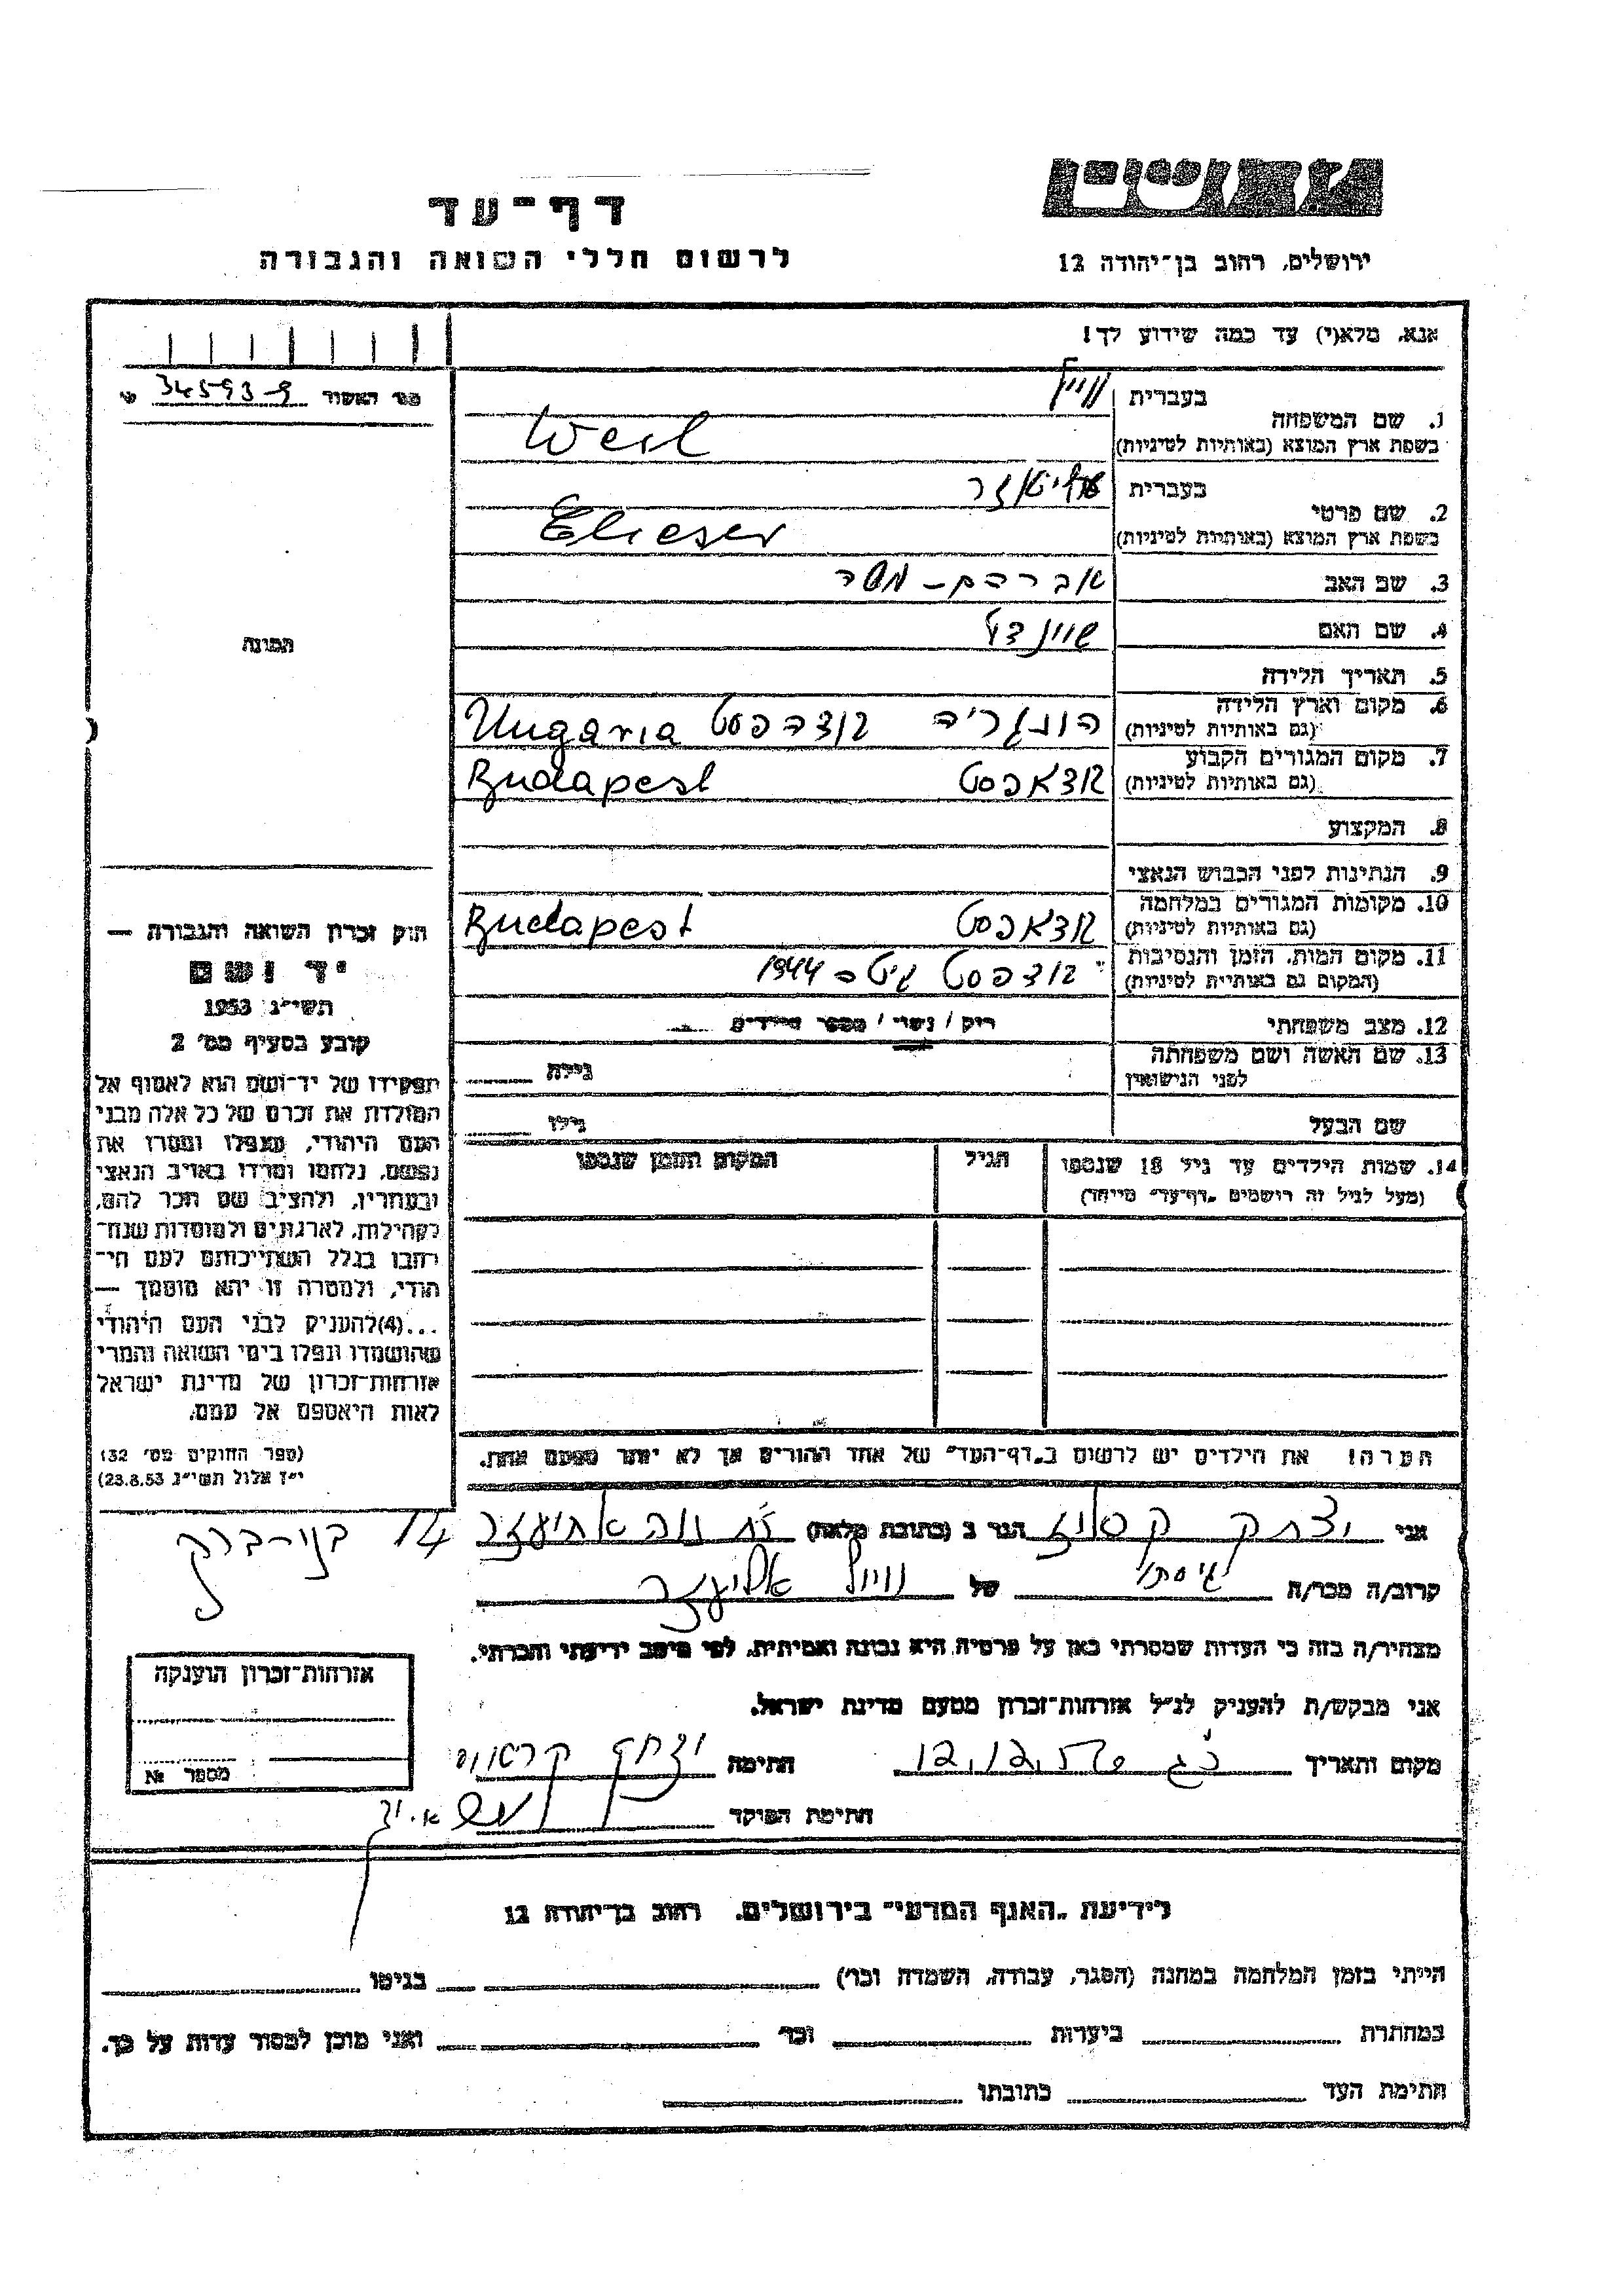 דף-עד
לרשום חללי השואה והגבורה
ירושלים, רחוב בן-יהודה 12
אנא, מלא(י) עד כמה שידוע לך!
מס' האשור 34593-9
1. שם המשפחה
בעברית ווייל
בשפת ארץ המוצא (באותיות לטיניות) Weil
2. שם פרטי
בעברית אליעזר
בשפת ארץ המוצא (באותיות לטיניות) Elieser
3. שם האב אברהם - משה
4. שם האם שיינדל
5. תאריך הלידה
6. מקום וארץ הלידה
(גם באותיות לטיניות) הונגריה בודפסט Ungaria
7. מקום המגורים הקבוע
(גם באותיות לטיניות) בודאפסט Budapest
8. המקצוע
9. הנתינות לפני הכבוש הנאצי
10. מקומות המגורים במלחמה
(גם באותיות לטיניות) בודאפסט Budapest
11. מקום המות, הזמן והנסיבות
(המקום גם באותיות לטיניות) בודפסט 1944
12. מצב משפחתי רווק / נשוי / מספר ילדים
13. שם האשה ושם משפחתה
לפני הנישואין גילה
שם הבעל גילו
14. שמות הילדים עד גיל 18 שנספו הגיל המקום והזמן שנספו
(מעל לגיל זה רושמים "דף-עד" מיוחד)
הערה! את הילדים יש לרשום ב"דף-העד" של אחד ההורים אך לא יותר מפעם אחת.
התמונה
חוק זכרון השואה והגבורה —
יד ושם
תשי"ג 1953
קובע בסעיף מס' 2
תפקידו של יד-ושם הוא לאסוף אל
המולדת את זכרם של כל אלה מבני
העם היהודי, שנפלו ומסרו את
נפשם, נלחמו ומרדו באויב הנאצי
ובעוזריו, ולהציב שם וזכר להם,
לקהילות, לארגונים ולמוסדות שנח-
רבו בגלל השתייכותם לעם הי-
הודי, ולמטרה זו יהא מוסמך —
...(4)להעניק לבני העם היהודי
שהושמדו ונפלו בימי השואה והמרי
אזרחות-זכרון של מדינת ישראל
לאות היאספם אל עמם.
(ספר החוקים מס' 132
י"ז אלול תשי"ג 23.8.53)
אני יצחק הגר ב (כתובת מלאה) 14 בני-ברק
קרוב/ה מכר/ה גיסתי של ווייל אליעזר
מצהיר/ה בזה כי העדות שמסרתי כאן על פרטיה היא נכונה ואמיתית, לפי מיטב ידיעתי והכרתי.
אני מבקש/ת להעניק לנ"ל אזרחות-זכרון מטעם מדינת ישראל.
מקום ותאריך 12.12.56 חתימה יצחק
חתימת הפוקד
אזרחות-זכרון הוענקה
מספר №
לידיעת "האגף המדעי" בירושלים, רחוב בן-יהודה 12
הייתי בזמן המלחמה במחנה (הסגר, עבודה, השמדה וכו') בגיטו
במחתרת ביערות וכו' ואני מוכן למסור עדות על כך.
חתימת העד כתובתו